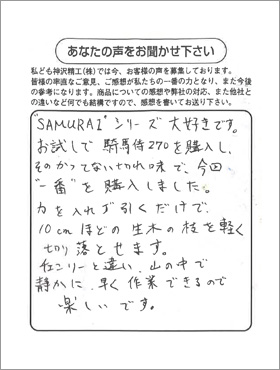 あなたの声をお聞かせ下さい
私ども神沢精工(株)では今、お客様の声を募集しております。
皆様の率直なご意見、ご感想が私たちの一番の力となり、また今後
の参考になります。商品についての感想や弊社の対応、また他社と
の違いなど何でも結構ですので、感想を書いてお送り下さい。
"SAMURAI"シリーズ大好きです。
お試しで騎馬侍270を購入し、
そのかつてない切れ味で、今回
"一番"を購入しました。
力を入れず引くだけで、
10cmほどの生木の枝を軽く
切り落とせます。
チェンソーと違い、山の中で
静かに、早く作業できるので
楽しいです。